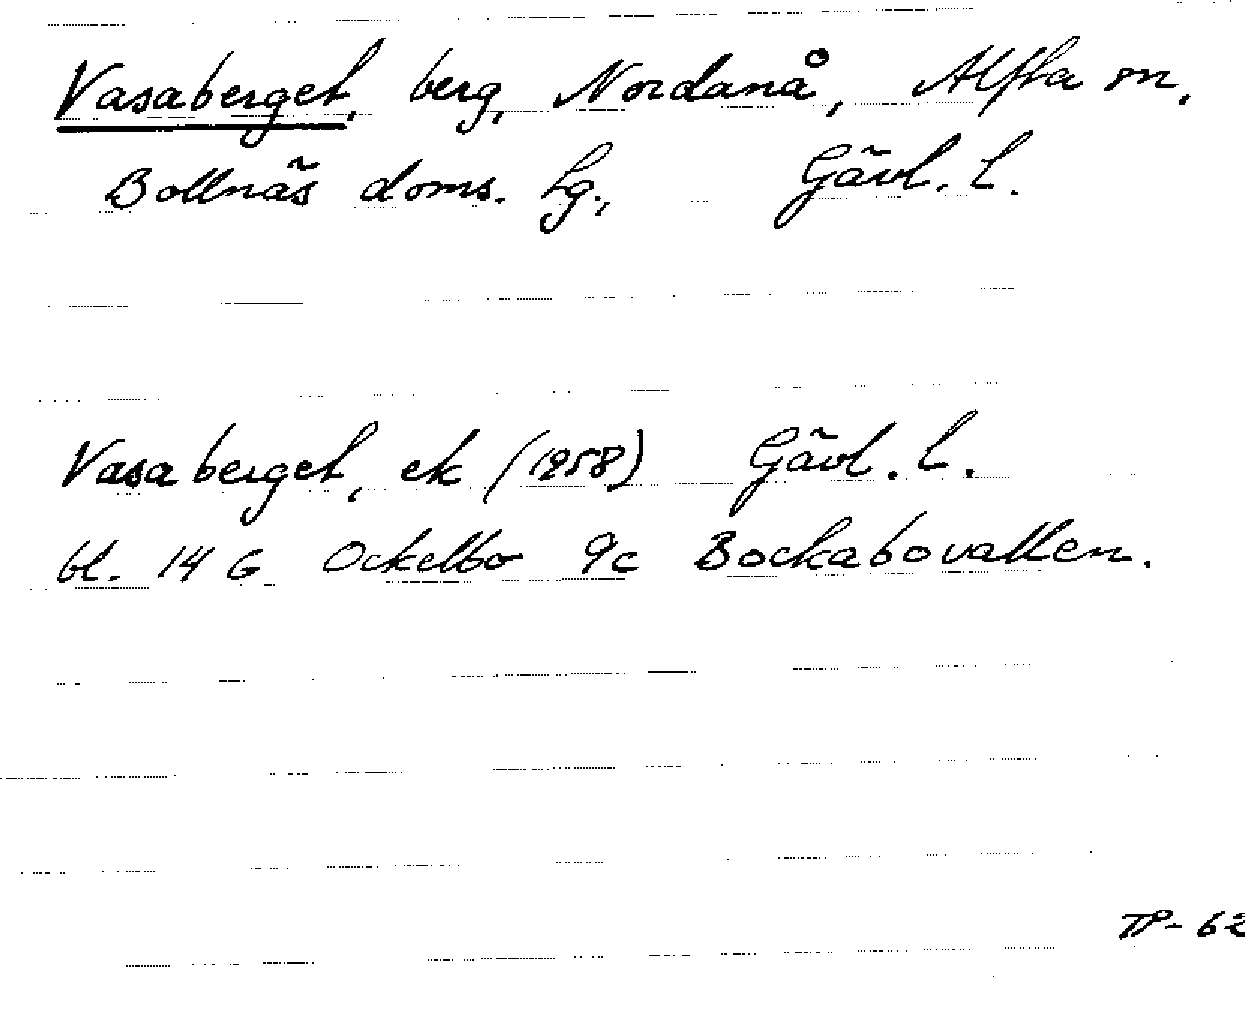 Vasaberget, berg, Nordanå, Alfta sn,
Bollnäs doms. hg., Gävl. l.
Vasaberget, ek (1958) Gävl. l.
bl. 14 G Ockelbo 9c Bockabovallen.
TP-62